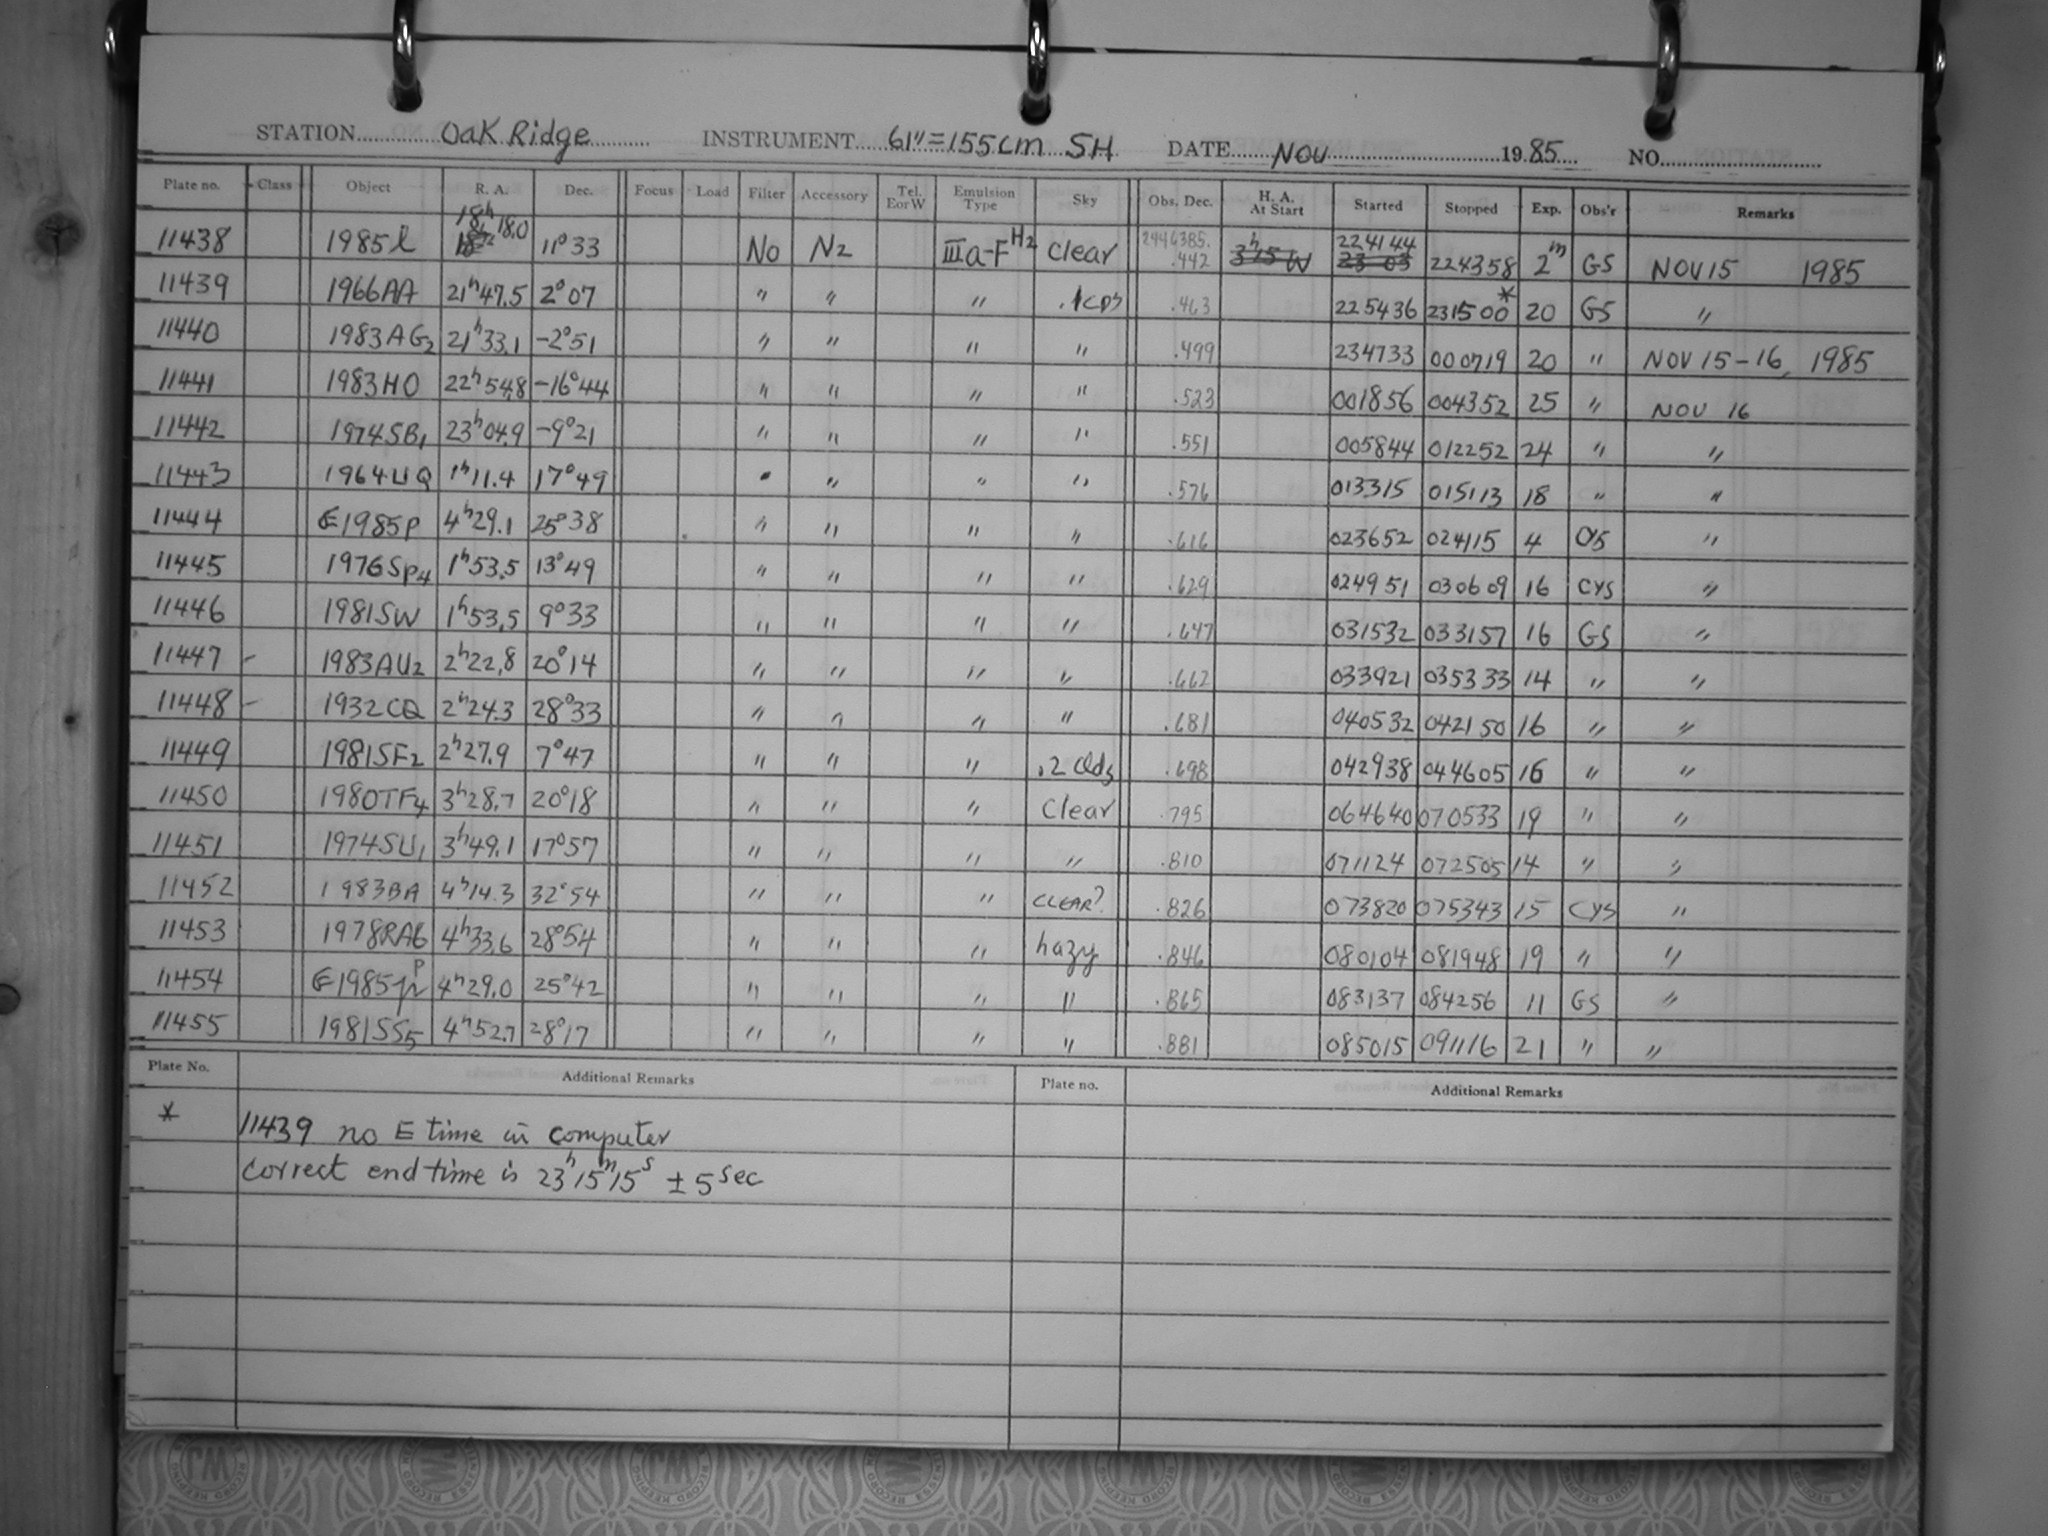 STATION Oak Ridge INSTRUMENT 61"=155cm SH DATE NOV 1985 NO.
Plate no. Class Object R. A. Dec. Focus Load Filter Accessory Tel. E or W Emulsion Type Sky Obs. Dec. H. A. At Start Started Stopped Exp. Obs'r Remarks
11438 1985l 18h 18.0 11°33 No N2 IIIa-F H2 Clear 2446385. .442 224144 224358 2m GS NOV 15 1985
11439 1966AA 21h47.5 2°07 " " " .1 cds .463 225436 231500* 20 GS "
11440 1983AG2 21h33.1 -2°51 " " " " .499 234733 000719 20 " NOV 15-16, 1985
11441 1983HO 22h54.8 -16°44 " " " " .523 001856 004352 25 " NOV 16
11442 1974SB1 23h04.9 -9°21 " " " " .551 005844 012252 24 " "
11443 1964UQ 1h11.4 17°49 " " " " .576 013315 015113 18 " "
11444 C1985P 4h29.1 25°38 " " " " .616 023652 024115 4 CYS "
11445 1976SP4 1h53.5 13°49 " " " " .629 024951 030609 16 CYS "
11446 1981SW 1h53.5 9°33 " " " " .647 031532 033157 16 GS "
11447 - 1983AU2 2h22.8 20°14 " " " " .662 033921 035333 14 " "
11448 - 1932CQ 2h24.3 28°33 " " " " .681 040532 042150 16 " "
11449 1981SF2 2h27.9 7°47 " " " .2 Clds .698 042938 044605 16 " "
11450 1980TF4 3h28.7 20°18 " " " Clear .795 064640 070533 19 " "
11451 1974SU1 3h49.1 17°57 " " " " .810 071124 072505 14 " "
11452 1983BA 4h14.3 32°54 " " " CLEAR? .826 073820 075343 15 CYS "
11453 1978RA6 4h33.6 28°54 " " " hazy .846 080104 081948 19 " "
11454 C1985p P 4h29.0 25°42 " " " " .865 083137 084256 11 GS "
11455 1981SS5 4h52.7 28°17 " " " " .881 085015 091116 21 " "
Plate No. Additional Remarks Plate no. Additional Remarks
* 11439 no E time in computer
correct end time is 23h15m15s ± 5 sec